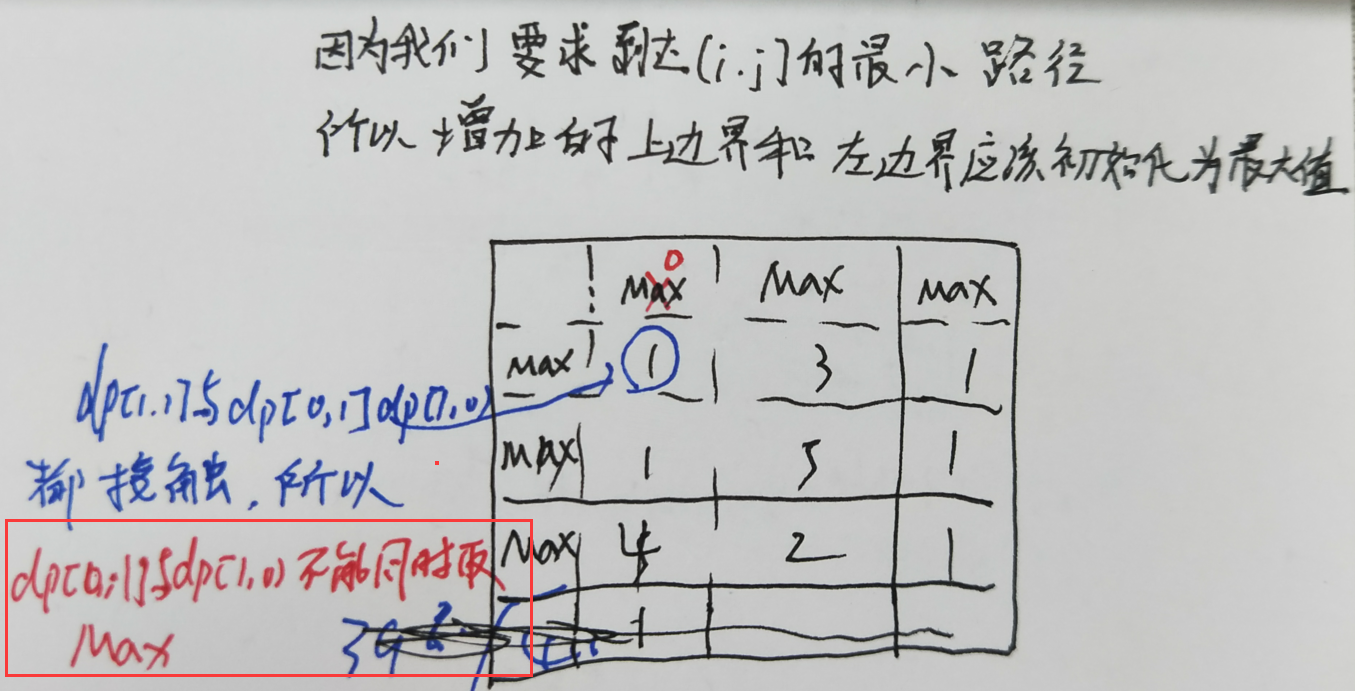 因为我们要求到达(i.j]的最小路径
所以增加的上边界和左边界应该初始化为最大值
0
Max Max Max
Max 1 3 1
dp[1.1]与dp[0,1]dp[1,0)
Max 1 5 1
都接触,所以
Max 4 2 1
dp[0,1]与dp(1,0)不能同时取
Max
1